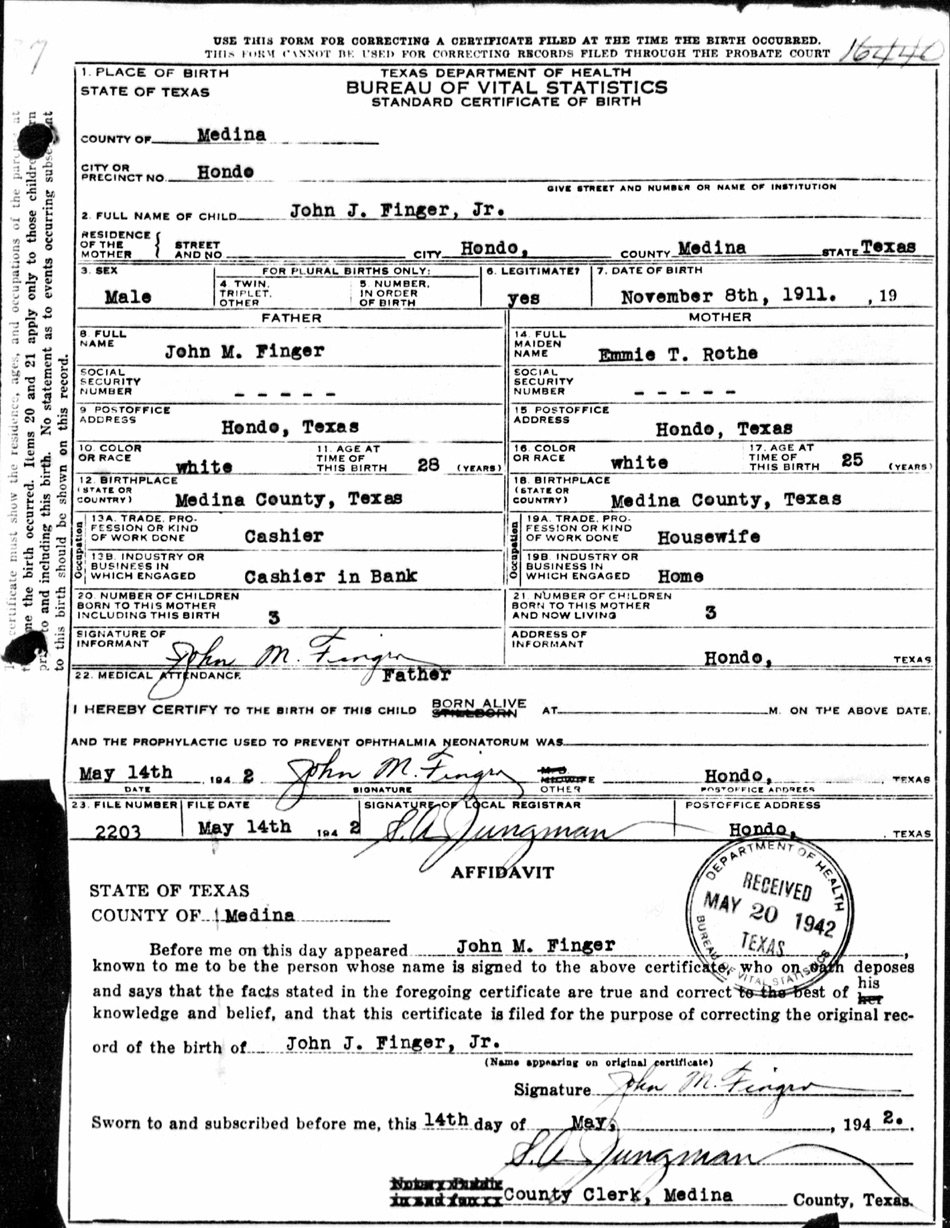 USE THIS FORM FOR CORRECTING A CERTIFICATE FILED AT THE TIME THE BIRTH OCCURRED.
THIS FORM CANNOT BE USED FOR CORRECTING RECORDS FILED THROUGH THE PROBATE COURT
7
16440
certificate must show the residence, ages, and occupations of the parents at
the birth occurred. Items 20 and 21 apply only to those children
and including this birth. No statement as to events occurring subsequent
to this birth should be shown on this record.
1. PLACE OF BIRTH
STATE OF TEXAS
TEXAS DEPARTMENT OF HEALTH
BUREAU OF VITAL STATISTICS
STANDARD CERTIFICATE OF BIRTH
COUNTY OF Medina
CITY OR PRECINCT NO. Hondo
GIVE STREET AND NUMBER OR NAME OF INSTITUTION
2. FULL NAME OF CHILD John J. Finger, Jr.
RESIDENCE OF THE MOTHER { STREET AND NO CITY Hondo, COUNTY Medina STATE Texas
3. SEX Male
FOR PLURAL BIRTHS ONLY:
4 TWIN, TRIPLET, OTHER
5. NUMBER, IN ORDER OF BIRTH
6. LEGITIMATE? yes
7. DATE OF BIRTH November 8th, 1911. , 19
FATHER
8. FULL NAME John M. Finger
SOCIAL SECURITY NUMBER - - - - -
9 POSTOFFICE ADDRESS Hondo, Texas
10. COLOR OR RACE white
11. AGE AT TIME OF THIS BIRTH 28 (YEARS)
12. BIRTHPLACE (STATE OR COUNTRY) Medina County, Texas
Occupation
13A. TRADE, PROFESSION OR KIND OF WORK DONE Cashier
13B. INDUSTRY OR BUSINESS IN WHICH ENGAGED Cashier in Bank
20. NUMBER OF CHILDREN BORN TO THIS MOTHER INCLUDING THIS BIRTH 3
SIGNATURE OF INFORMANT John M. Finger
MOTHER
14. FULL MAIDEN NAME Emmie T. Rothe
SOCIAL SECURITY NUMBER - - - - -
15 POSTOFFICE ADDRESS Hondo, Texas
16. COLOR OR RACE white
17. AGE AT TIME OF THIS BIRTH 25 (YEARS)
18. BIRTHPLACE (STATE OR COUNTRY) Medina County, Texas
Occupation
19A. TRADE, PROFESSION OR KIND OF WORK DONE Housewife
19B. INDUSTRY OR BUSINESS IN WHICH ENGAGED Home
21. NUMBER OF CHILDREN BORN TO THIS MOTHER AND NOW LIVING 3
ADDRESS OF INFORMANT Hondo, TEXAS
22. MEDICAL ATTENDANCE Father
I HEREBY CERTIFY TO THE BIRTH OF THIS CHILD BORN ALIVE STILLBORN AT M. ON THE ABOVE DATE.
AND THE PROPHYLACTIC USED TO PREVENT OPHTHALMIA NEONATORUM WAS
May 14th , 194 2 John M. Finger M-D MIDWIFE OTHER Hondo, , TEXAS
DATE SIGNATURE POSTOFFICE ADDRESS
23. FILE NUMBER FILE DATE SIGNATURE OF LOCAL REGISTRAR POSTOFFICE ADDRESS
2203 May 14th 194 2 S.A. Jungman Hondo, , TEXAS
AFFIDAVIT
STATE OF TEXAS
COUNTY OF Medina
DEPARTMENT OF HEALTH
RECEIVED
MAY 20 1942
TEXAS
BUREAU OF VITAL STATISTICS
Before me on this day appeared John M. Finger ,
known to me to be the person whose name is signed to the above certificate, who on oath deposes
and says that the facts stated in the foregoing certificate are true and correct to the best of his her
knowledge and belief, and that this certificate is filed for the purpose of correcting the original rec-
ord of the birth of John J. Finger, Jr.
(Name appearing on original certificate)
Signature John M. Finger
Sworn to and subscribed before me, this 14th day of May, , 194 2.
S.A. Jungman
Notary Public
in and for County Clerk, Medina County, Texas.